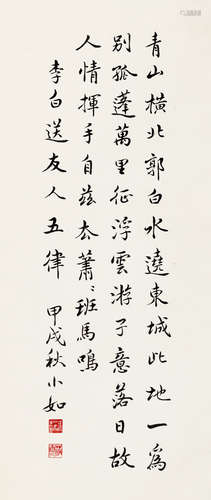 青山橫北郭白水遶東城此地一為
別孤蓬萬里征浮雲游子意落日故
人情揮手自茲去蕭〻班馬鳴
李白送友人五律 甲戌秋小如